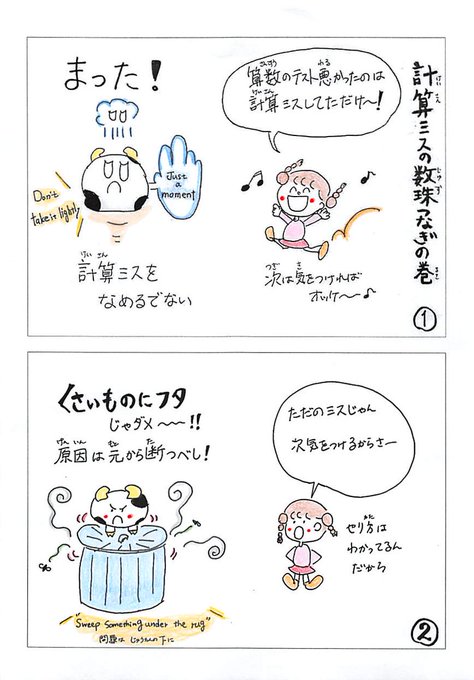 計算ミスの数珠つなぎの巻
算数のテスト悪かったのは
計算ミスしてただけ〜!
次は気をつければ
オッケ〜♪
まった!
Just
a
moment
Don't
take it lightly
計算ミスを
なめるでない
①
ただのミスじゃん
次気をつけるからさー
やり方は
わかってるん
だから
くさいものにフタ
じゃダメ〜〜!!
原因は元から断つべし!
"Sweep something under the rug"
問題は じゅうたんの下に
②